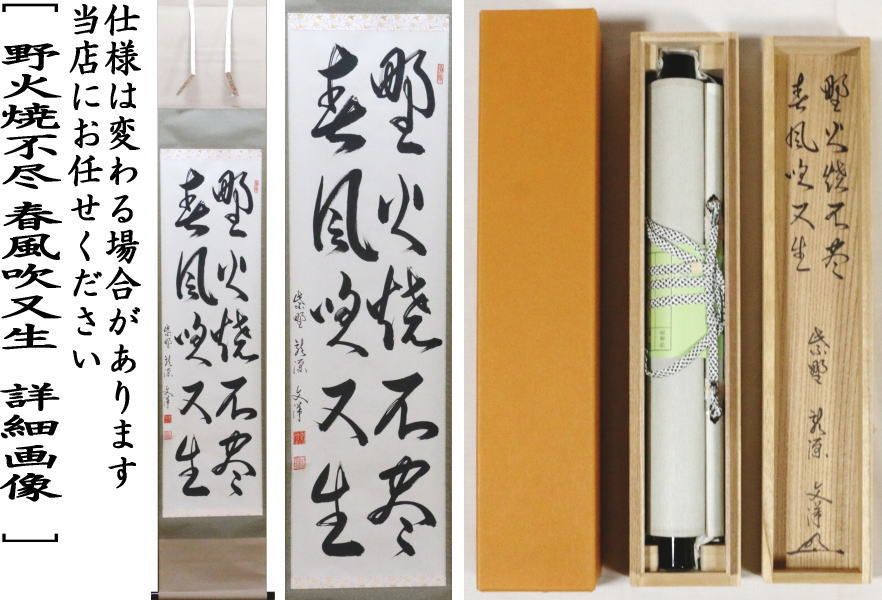 仕様は変わる場合があります
当店にお任せください
[ 野火焼不尽 春風吹又生 詳細画像 ]
野火焼不尽
春風吹又生
紫野 龍源 文洋
野火焼不尽
春風吹又生
紫野 龍源 文洋
野火焼不尽
春風吹又生
紫野 龍源 文洋